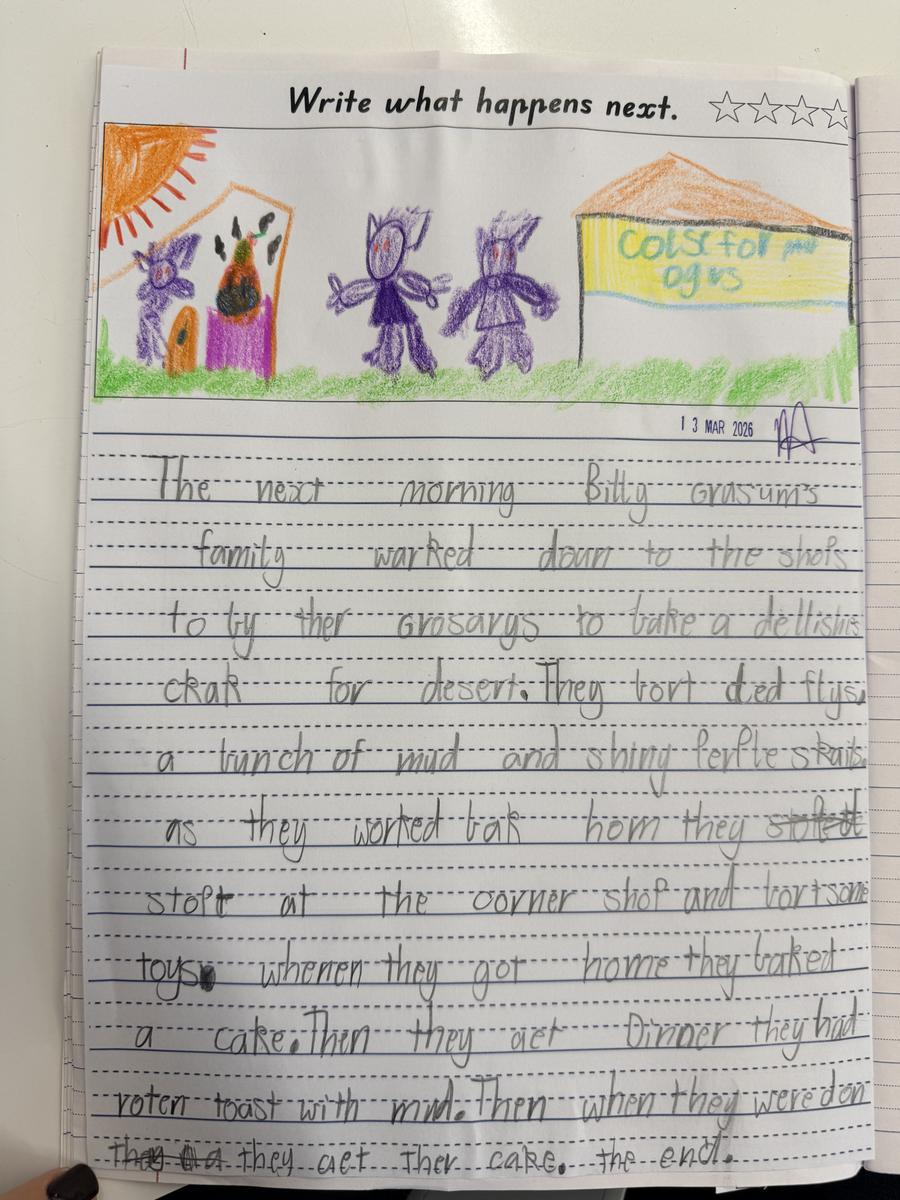 Write what happens next.
Colse for
ogrs
13 MAR 2026
The next morning Billy Grasum's
family warked doun to the shops
to by ther Grosarys to bake a dellishis
ckak for desert. They bort died flys,
a bunch of mud and shing perple skails.
as they worked bak hom they
stopt at the corner shop and bort some
toys. whenen they got home they baked
a cake. Then they aet Dinner they had
roten toast with mud. Then when they were don
they aet ther cake. the end.